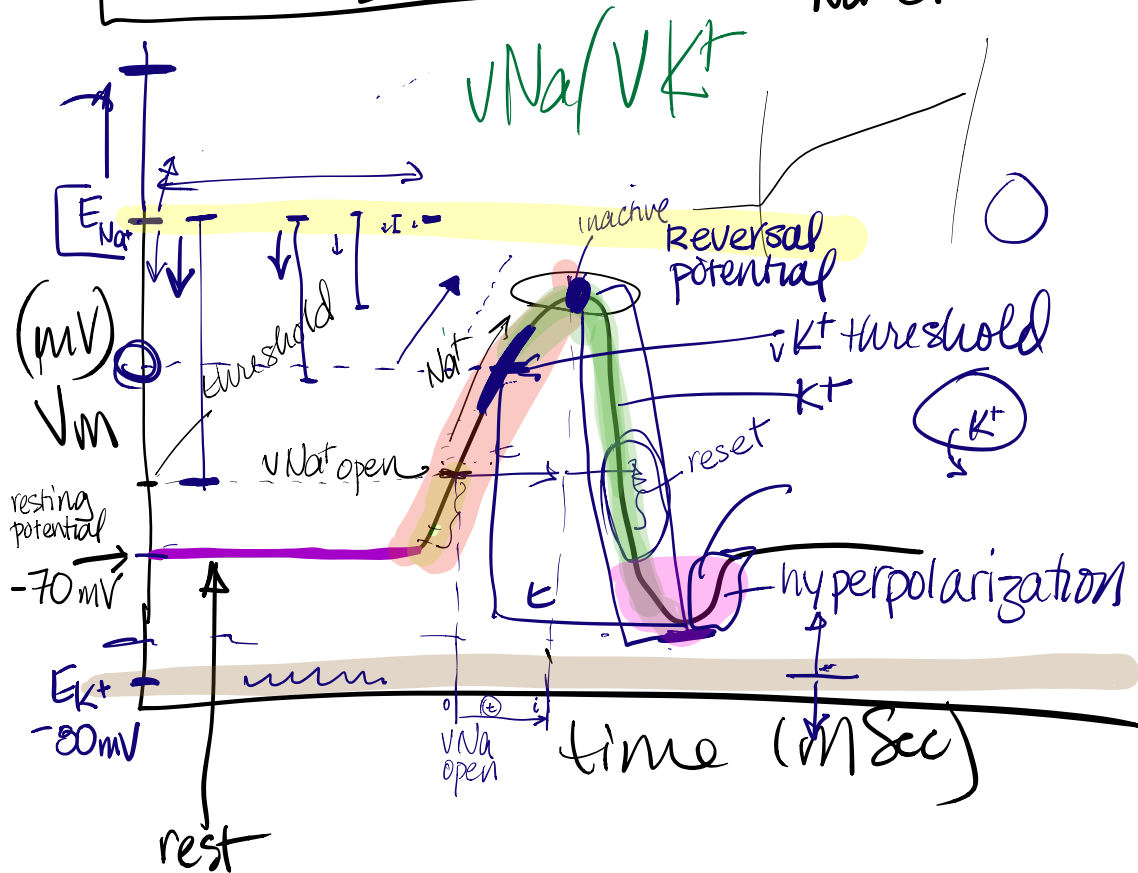 vNa/VK+
ENa+
inactive
Reversal
potential
(mV)
Vm
threshold
Na+
vK+ threshold
K+
K+
vNa+ open
reset
resting
potential
-70mV
t
hyperpolarization
EK+
-80mV
o t i
vNa
open
time (mSec)
rest